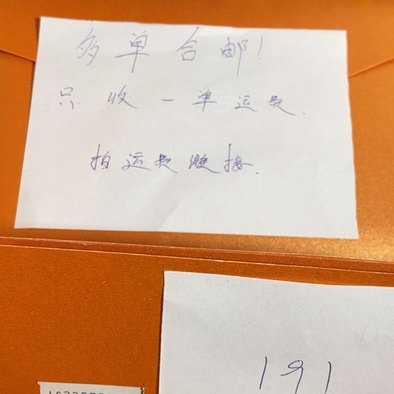 多单合邮！
只收一单运费.
拍运费链接.
191